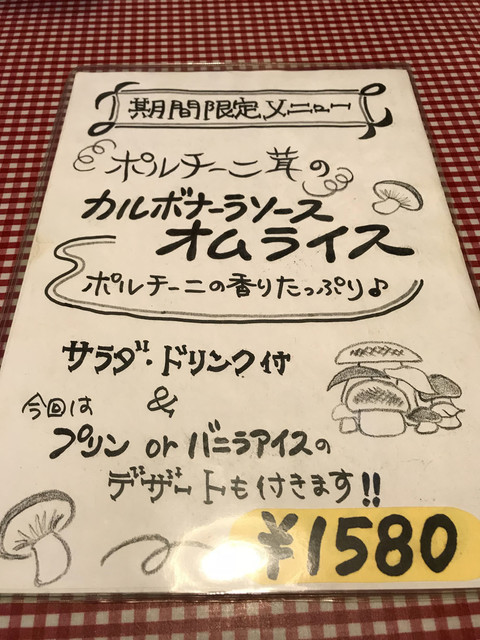 期間限定メニュー
ポルチーニ茸の
カルボナーラソース
オムライス
ポルチーニの香りたっぷり♪
サラダ・ドリンク付
&
今回は
プリン or バニラアイスの
デザートも付きます!!
¥1580